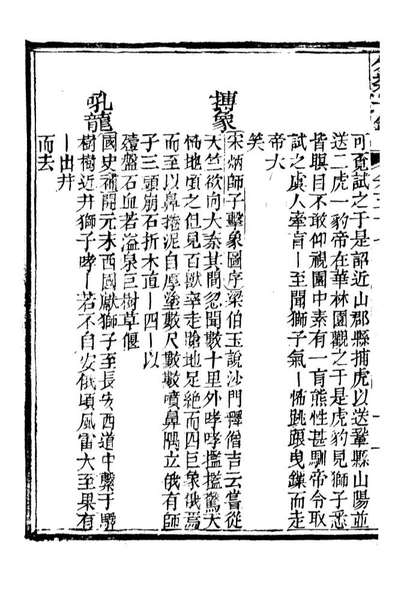 可覔試之于是詔近山郡縣捕虎以送鞏縣山陽並
送二虎一豹帝在華林園觀之于是虎豹見獅子悉
皆瞑目不敢仰視園中素有一盲熊性甚馴帝令取
試之虞人牽盲丨至聞獅子氣丨怖跳踉曳鎖而走
帝大
笑
搏象
宋炳師子擊象圖序梁伯玉說沙門釋僧吉云嘗從
天竺欲向大秦其間忽聞數十里外哮哮檻檻驚天
怖地頃之但見百獸率走蹌地足絶而四巨象俄焉
而至以鼻捲泥自厚塗數尺數數噴鼻隅立俄有師
子三頭崩石折木直丨四丨以
殪盤石血若溢泉巨樹草偃
吼龍
國史補開元末西國獻獅子至長安西道中繫于驛
樹樹近井獅子哮丨若不自安俄頃風雷大至果有
丨出井
而去